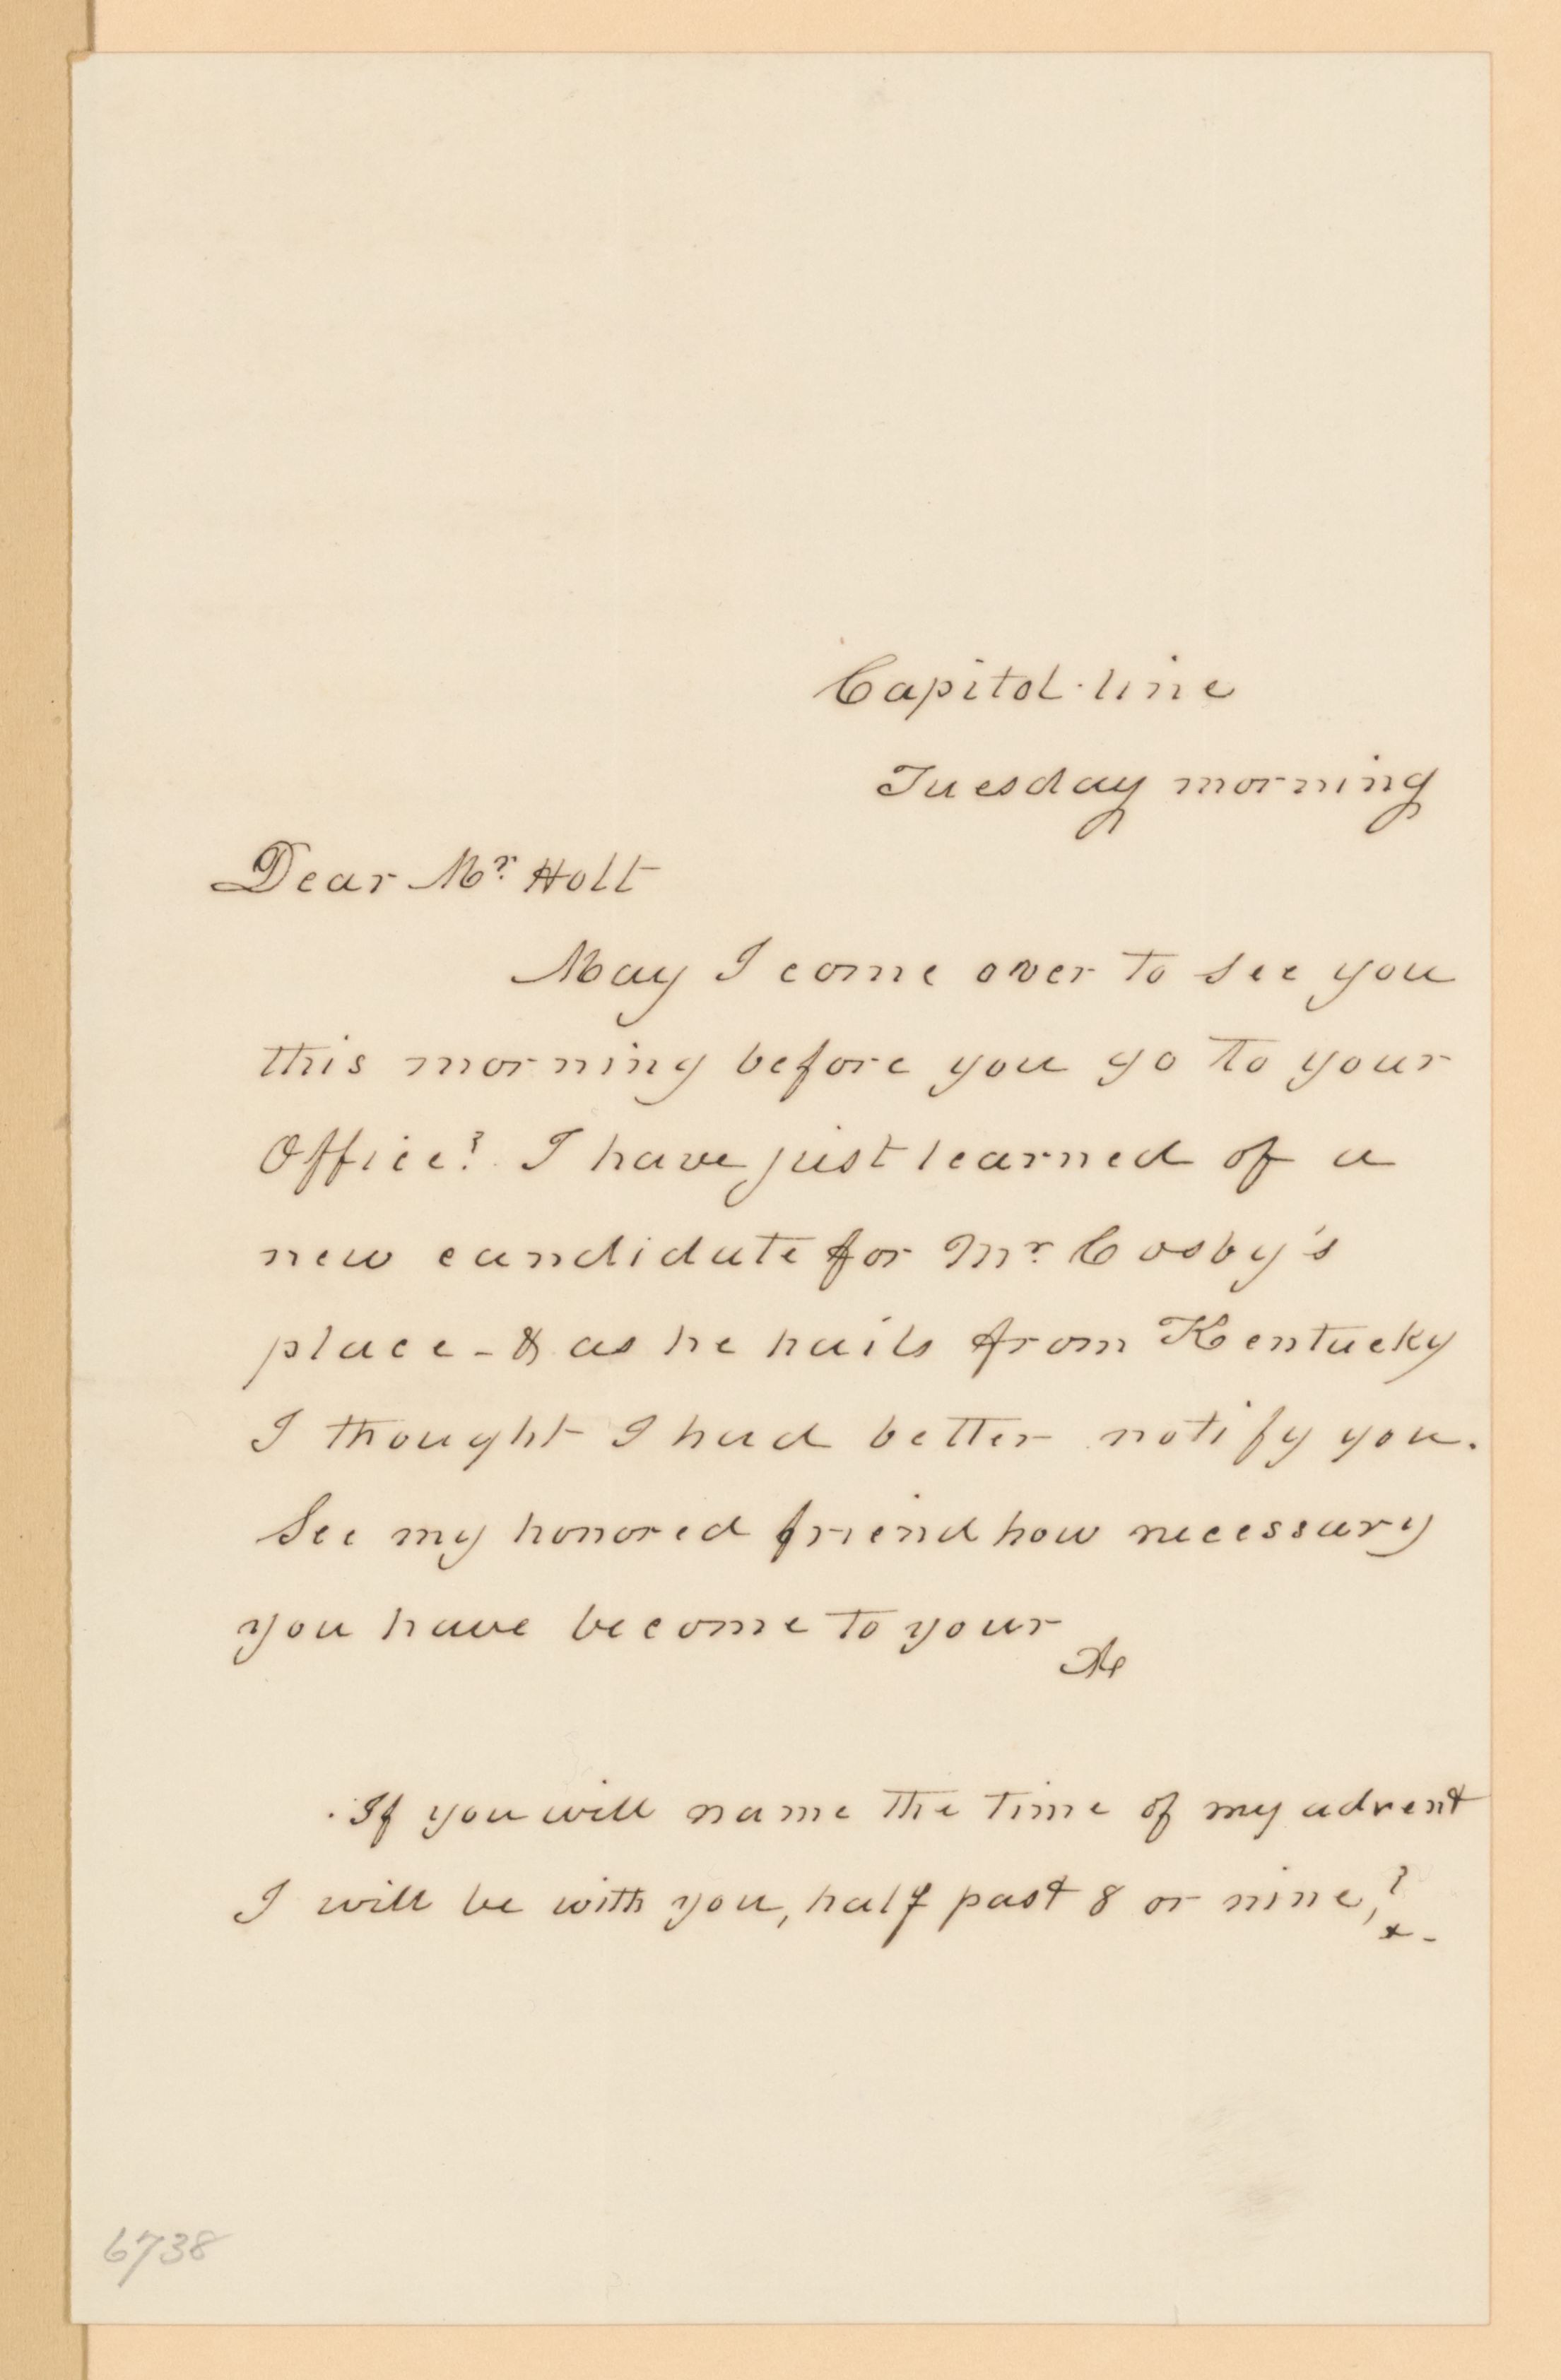 Capitol-line
Tuesday morning
Dear Mr Holt
May I come over to see you
this morning before you go to your
Office? I have just learned of a
new candidate for Mr Cosby's
place - & as he hails from Kentucky
I thought I had better notify you.
See my honored friend how necessary
you have become to your
If you will name the time of my advent
I will be with you, half past 8 or nine,?
x -
6738